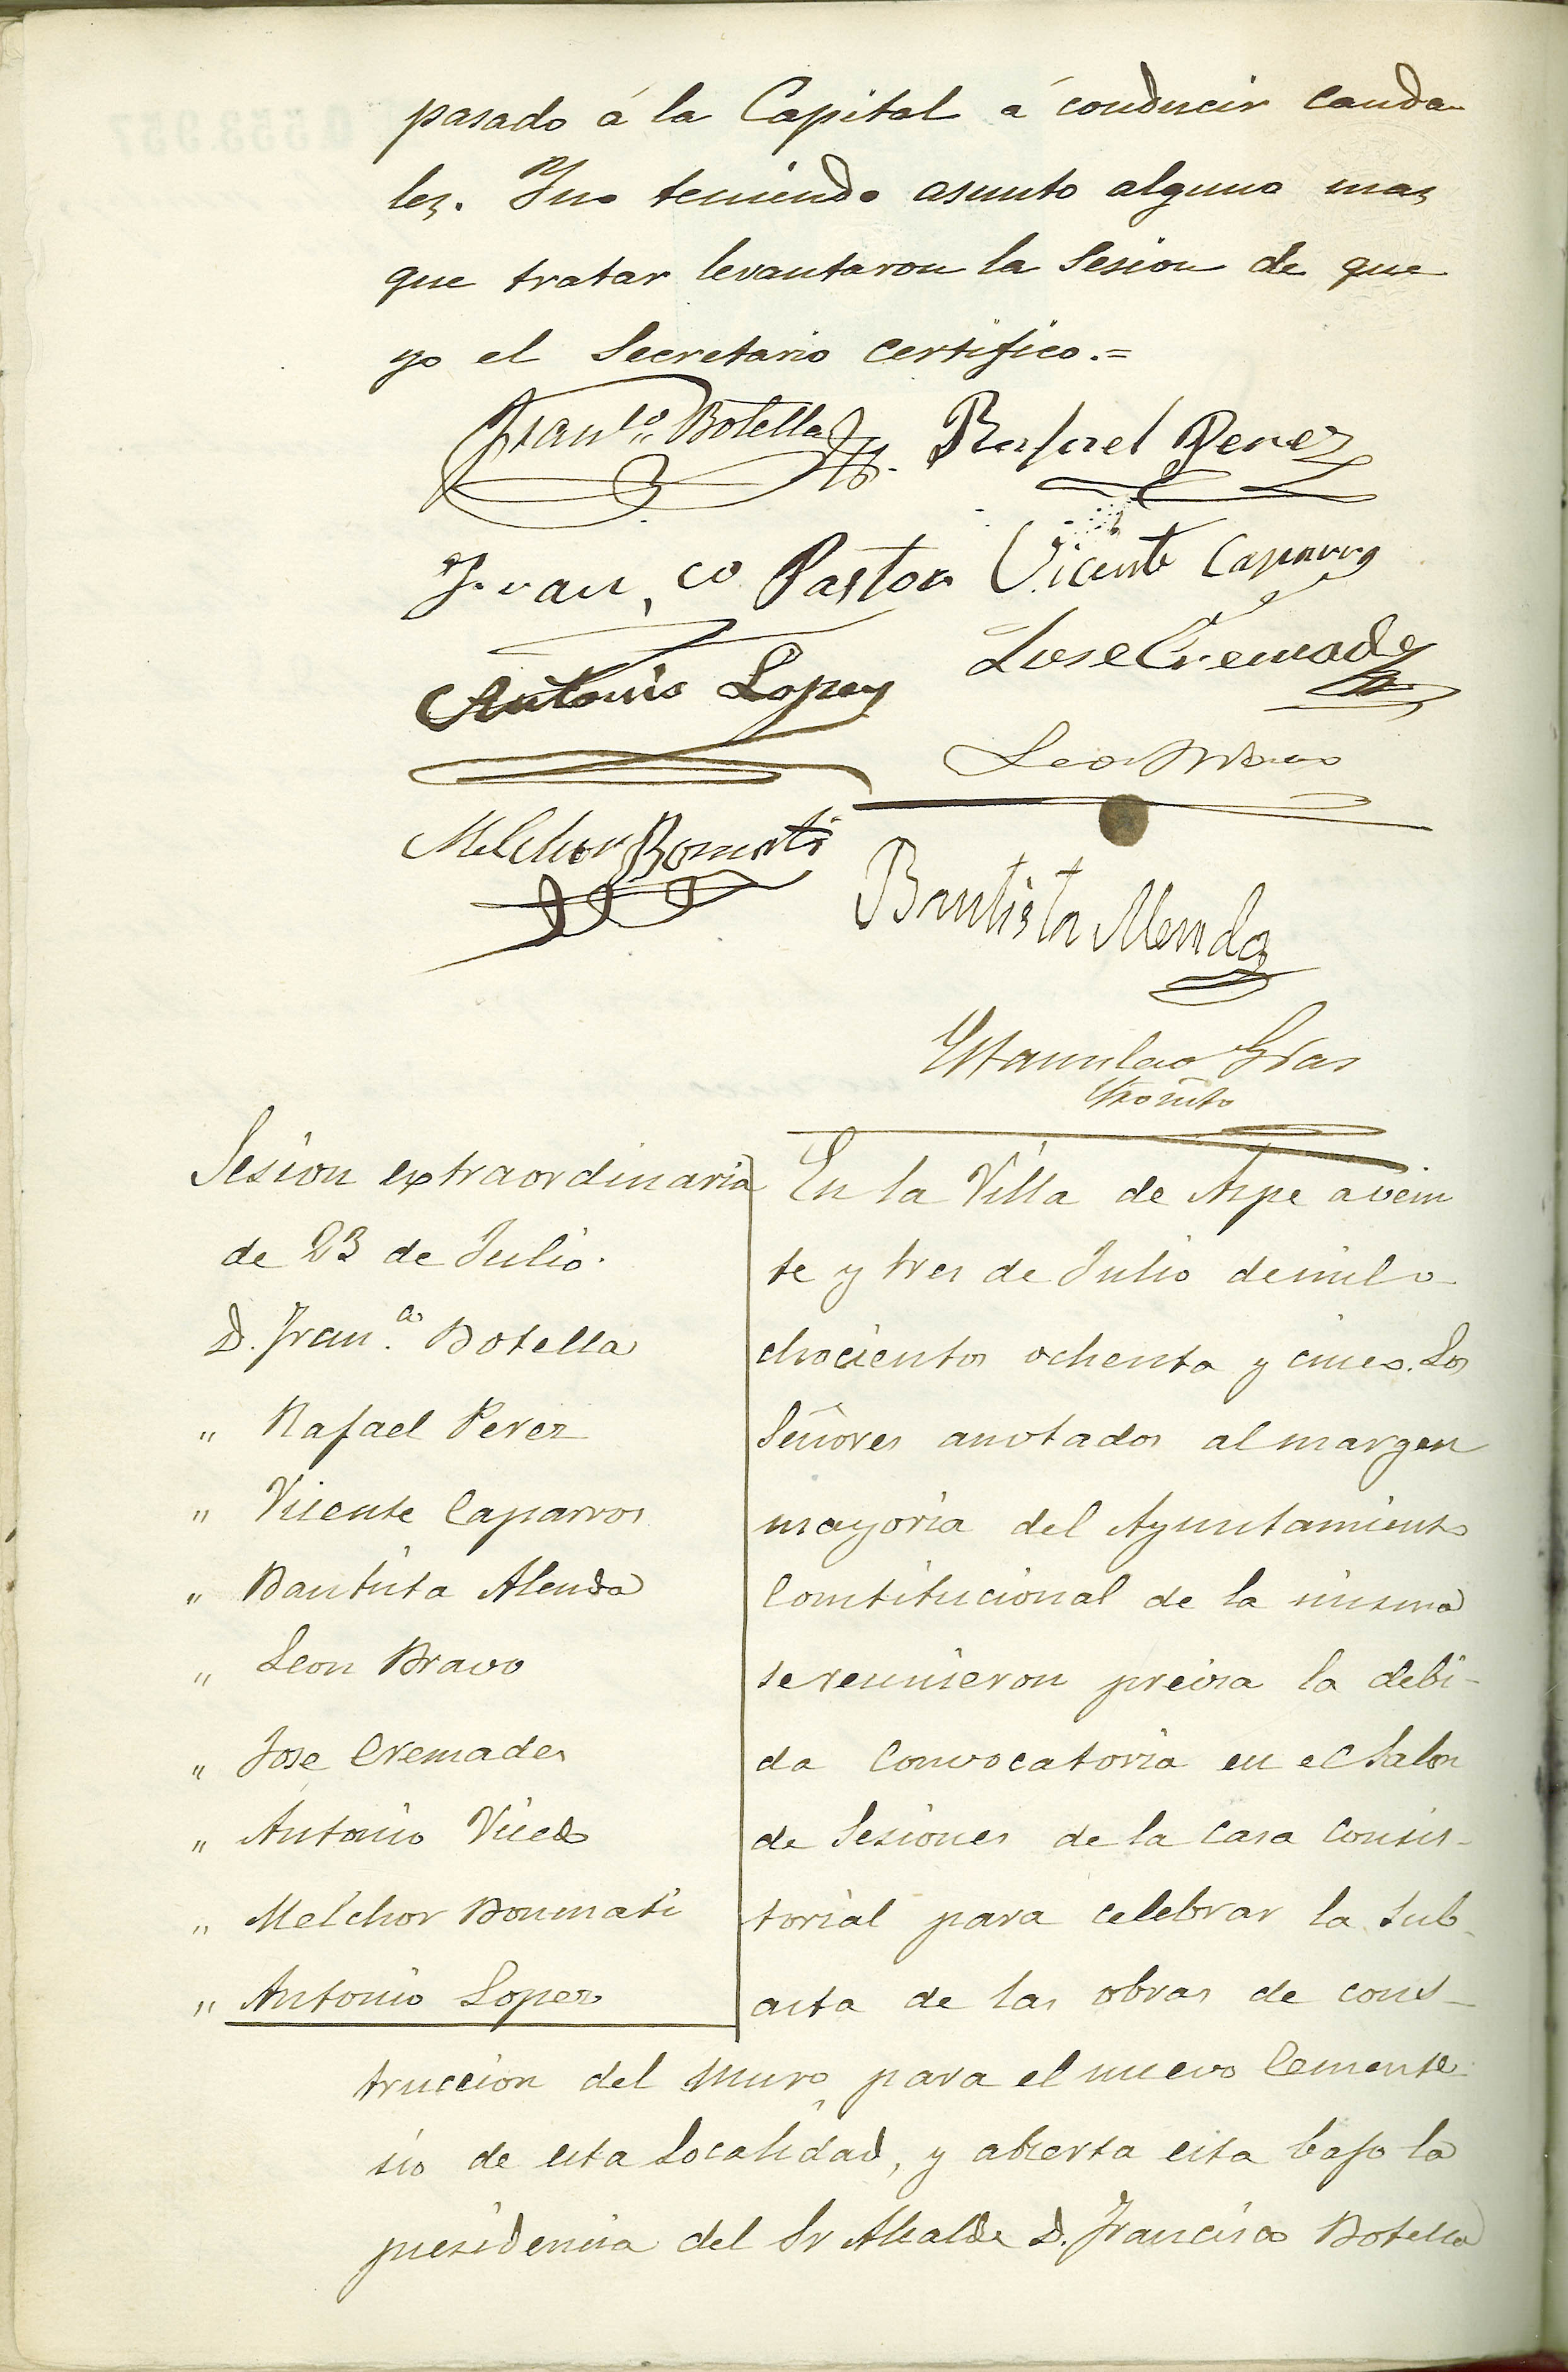 pasado á la Capital á conducir cauda-
les. Y no teniendo asunto alguno mas
que tratar levantaron la Sesion de que
yo el Secretario certifico.=
Fran.co Botella Rafael Perez
Fran,co Pastor Vicente Caparros
Antonio Lopez Jose Cremades
Leon Bravo
Melchor Bonmati
Bautista Alenda
Estanislao Gras
Sesion extraordinaria
de 23 de Julio.
D. Fran.co Botella
" Rafael Perez
" Vicente Caparros
" Bautista Alenda
" Leon Bravo
" Jose Cremades
" Antonio Vicedo
" Melchor Bonmati
" Antonio Lopez
En la Villa de Aspe a vein
te y tres de Julio de mil o-
chocientos ochenta y cinco. Los
Señores anotados al margen
mayoria del Ayuntamiento
Constitucional de la misma
se reunieron previa la debi-
da Convocatoria en el Salon
de Sesiones de la Casa Consis-
torial para celebrar la Sub-
asta de las obras de cons-
truccion del muro para el nuevo Cemente-
rio de esta Localidad, y abierta esta bajo la
presidencia del Sr Alcalde D. Francisco Botella